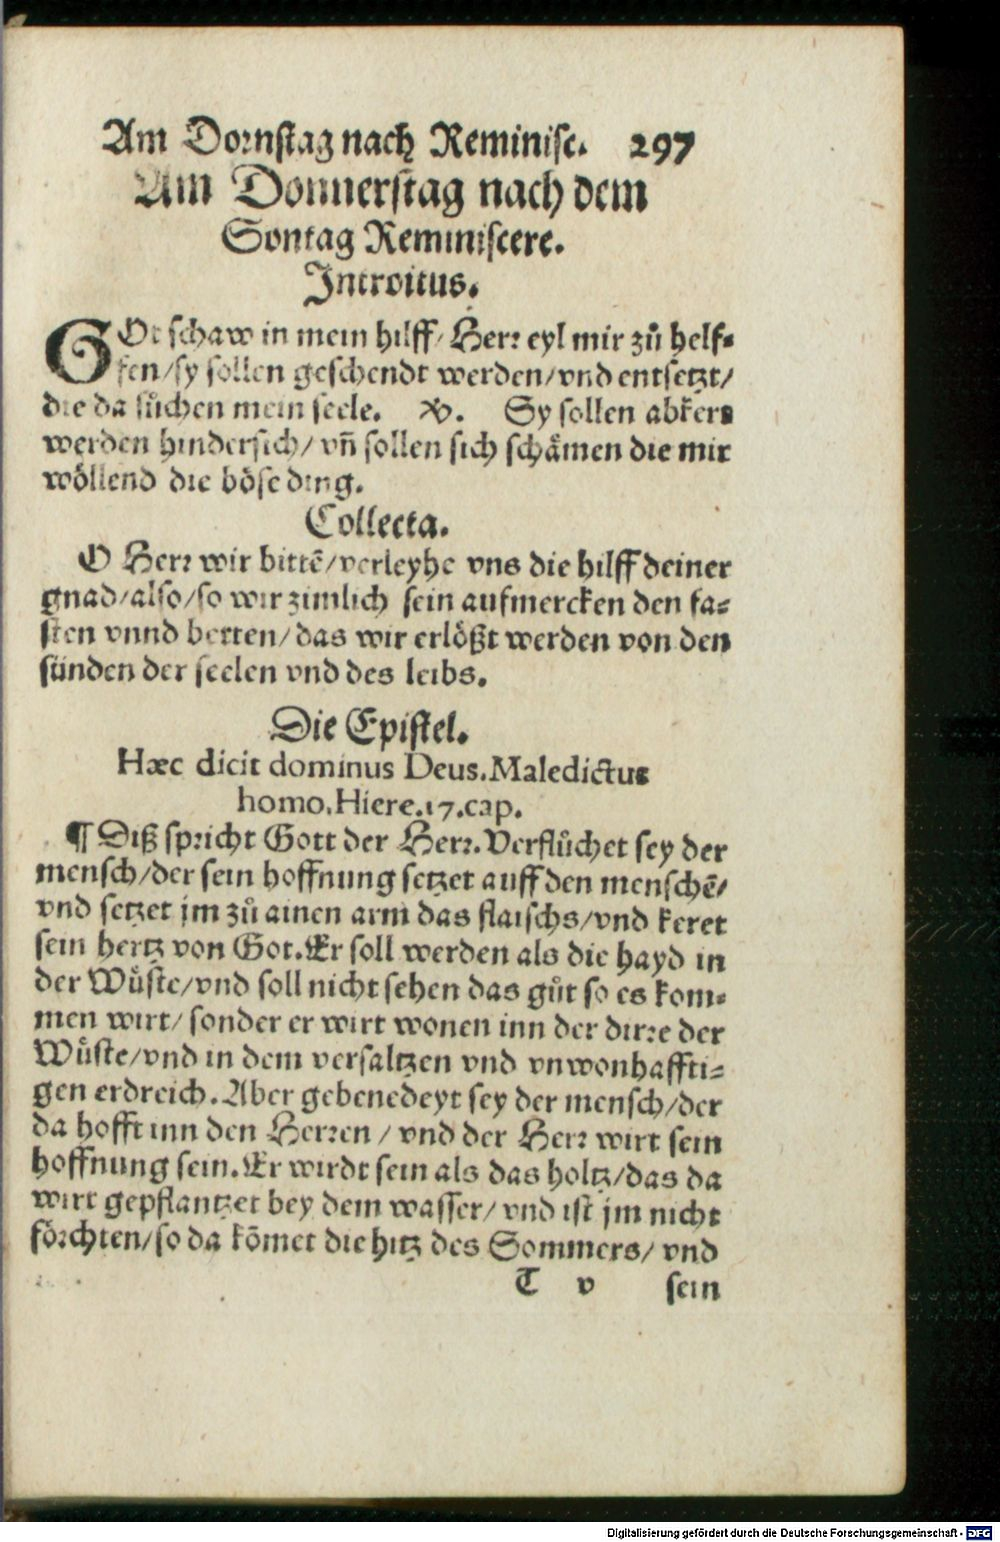 Am Dornstag nach Reminisc. 297
Am Donnerstag nach dem
Sontag Reminiscere.
Introitus.
GOt schaw in mein hilff/ Herr eyl mir zů helf-
fen/sy sollen geschendt werden/vnd entsetzt/
die da sůchen mein seele. ℣. Sy sollen abkert
werden hindersich/ vñ sollen sich schämen die mir
wöllend die böse ding.
Collecta.
O Herr wir bittē/verleyhe vns die hilff deiner
gnad/also/so wir zimlich sein aufmercken den fa-
sten vnnd betten/das wir erlößt werden von den
sünden der seelen vnd des leibs.
Die Epistel.
Hæc dicit dominus Deus. Maledictus
homo. Hiere.17.cap.
¶ Diß spricht Gott der Herr. Verflůchet sey der
mensch/der sein hoffnung setzet auff den menschē/
vnd setzet jm zů ainen arm das flaischs/vnd keret
sein hertz von Got. Er soll werden als die hayd in
der Wůste/vnd soll nicht sehen das gůt so es kom-
men wirt/ sonder er wirt wonen inn der dirre der
Wůste/vnd in dem versaltzen vnd vnwonhaffti-
gen erdreich. Aber gebenedeyt sey der mensch/der
da hofft inn den Herren / vnd der Herr wirt sein
hoffnung sein. Er wirdt sein als das holtz/das da
wirt gepflantzet bey dem wasser/ vnd ist jm nicht
förchten/so da kōmet die hitz des Sommers/ vnd
T v sein
Digitalisierung gefördert durch die Deutsche Forschungsgemeinschaft - DFG